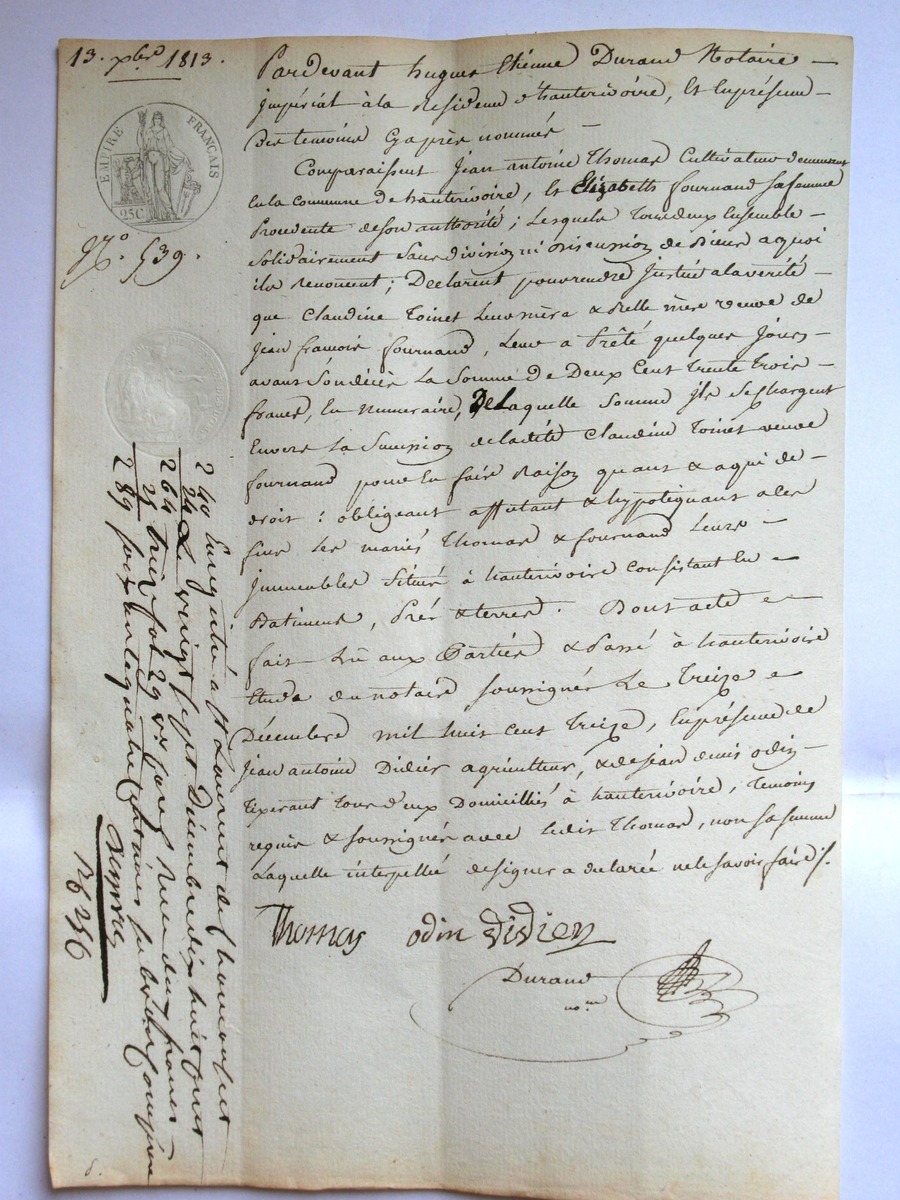 13. xbre 1813.
EMPIRE FRANÇAIS
25C.
N°. 539.
Pardevant hugues Etienne Durand Notaire
impérial à la Residence d'hauterivoire, et En présence
des temoins Cy après nommés
Comparaissent Jean antoine Thomas Cultivateur demeurant
En la commune de hauterivoire, et Elizabeth fournand sa femme
Procedente de son authorité; Lesquels Tous deux Ensemble
Solidairement Sans division ni discussion de Biens a quoi
ils Renoncent; Declarent pour rendre Justice a la verité
que Claudine Toinet Leur mère & Belle mère veuve de
Jean francois fournand, Leur a Prêté quelques Jours
avant Son décès La Somme de Deux Cent Trente trois
francs, En Numeraire, De Laquelle Somme ils Se chargent
Envers La Succession de ladite Claudine Toinet veuve
fournand pour En faire Raison quant & a qui de
droit: obligeant affectant & hypotequant a ces
fins Les mariés Thomas & fournand Leurs
Immeubles Situés à hauterivoire Consistant En
Batiment, Prés & terres. Dont acte
fait Lu aux Parties & Passé à hauterivoire
Etude du notaire soussigné Le Treize
Décembre mil huit Cent Treize, En présence de
Jean antoine Didier agriculteur, & de Jean denis odin
Tixerant Tous d'eux Domiciliés à hauterivoire, Temoins
requis & soussignés avec Ledit Thomas, non Sa femme
Laquelle interpellée de signer a declarée ne le savoir faire /.
Thomas odin Didier
Durand
no.re
Enregistré a St Laurent de Chamousset
Le vingt sept Décembre dix huit cent
treize fol 29 Vo Case
2 40
24
2 64
25
2 89